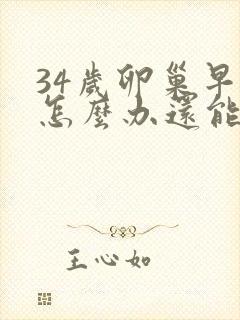 34歲卵巢早
怎麼办還能
王心如